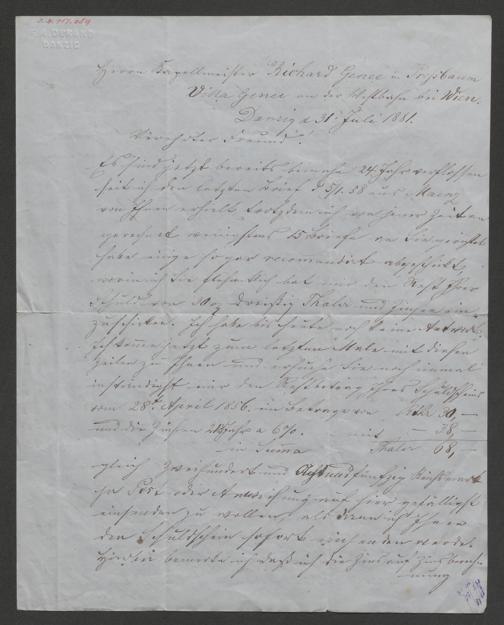 F. A. DURAND
DANZIG
Herrn Kapellmeister Richard Genée in Pressbaum
Villa Genée an der Westbahn bei Wien.
Danzig d 31 Juli 1881.
Verehrter Freund!
Es sind jetzt bereits beinahe 24 Jahr verflossen
seit ich den letzten Brief d 5/1. 58 aus Mainz
von Ihnen erhielt, trotzdem ich von jener Zeit an
gerechnet wenigstens 15 Briefe an Sie gerichtet
habe einige sogar recomandirt abgeschickt,
worin ich Sie flehentlich bat mir den Rest Ihrer
Schuld von 30 Dreißig Thaler und Zinsen ein-
zuschicken. Ich habe bis heute noch keine Antwort.
Ich komme jetzt zum letzten Male mit diesen
Zeilen zu Ihnen und ersuche Sie noch einmal
inständigst mir den Restbetrag Ihres Schuldscheins
vom 28t April 1856. im Betrage von 30,—
und die Zinsen Jahr a 6%. mit — 38,—
in Suma Thaler 68,—
gleich Zweihundert und Achtundfünfzig Reichsmark
pr Post oder Anweisung auf hier gefälligst
einsenden zu wollen, als dann ich Ihnen
den Schuldschein sofort einsenden werde.
Hierbei bemerke ich daß ich die Zins auf Zins berech-
nung